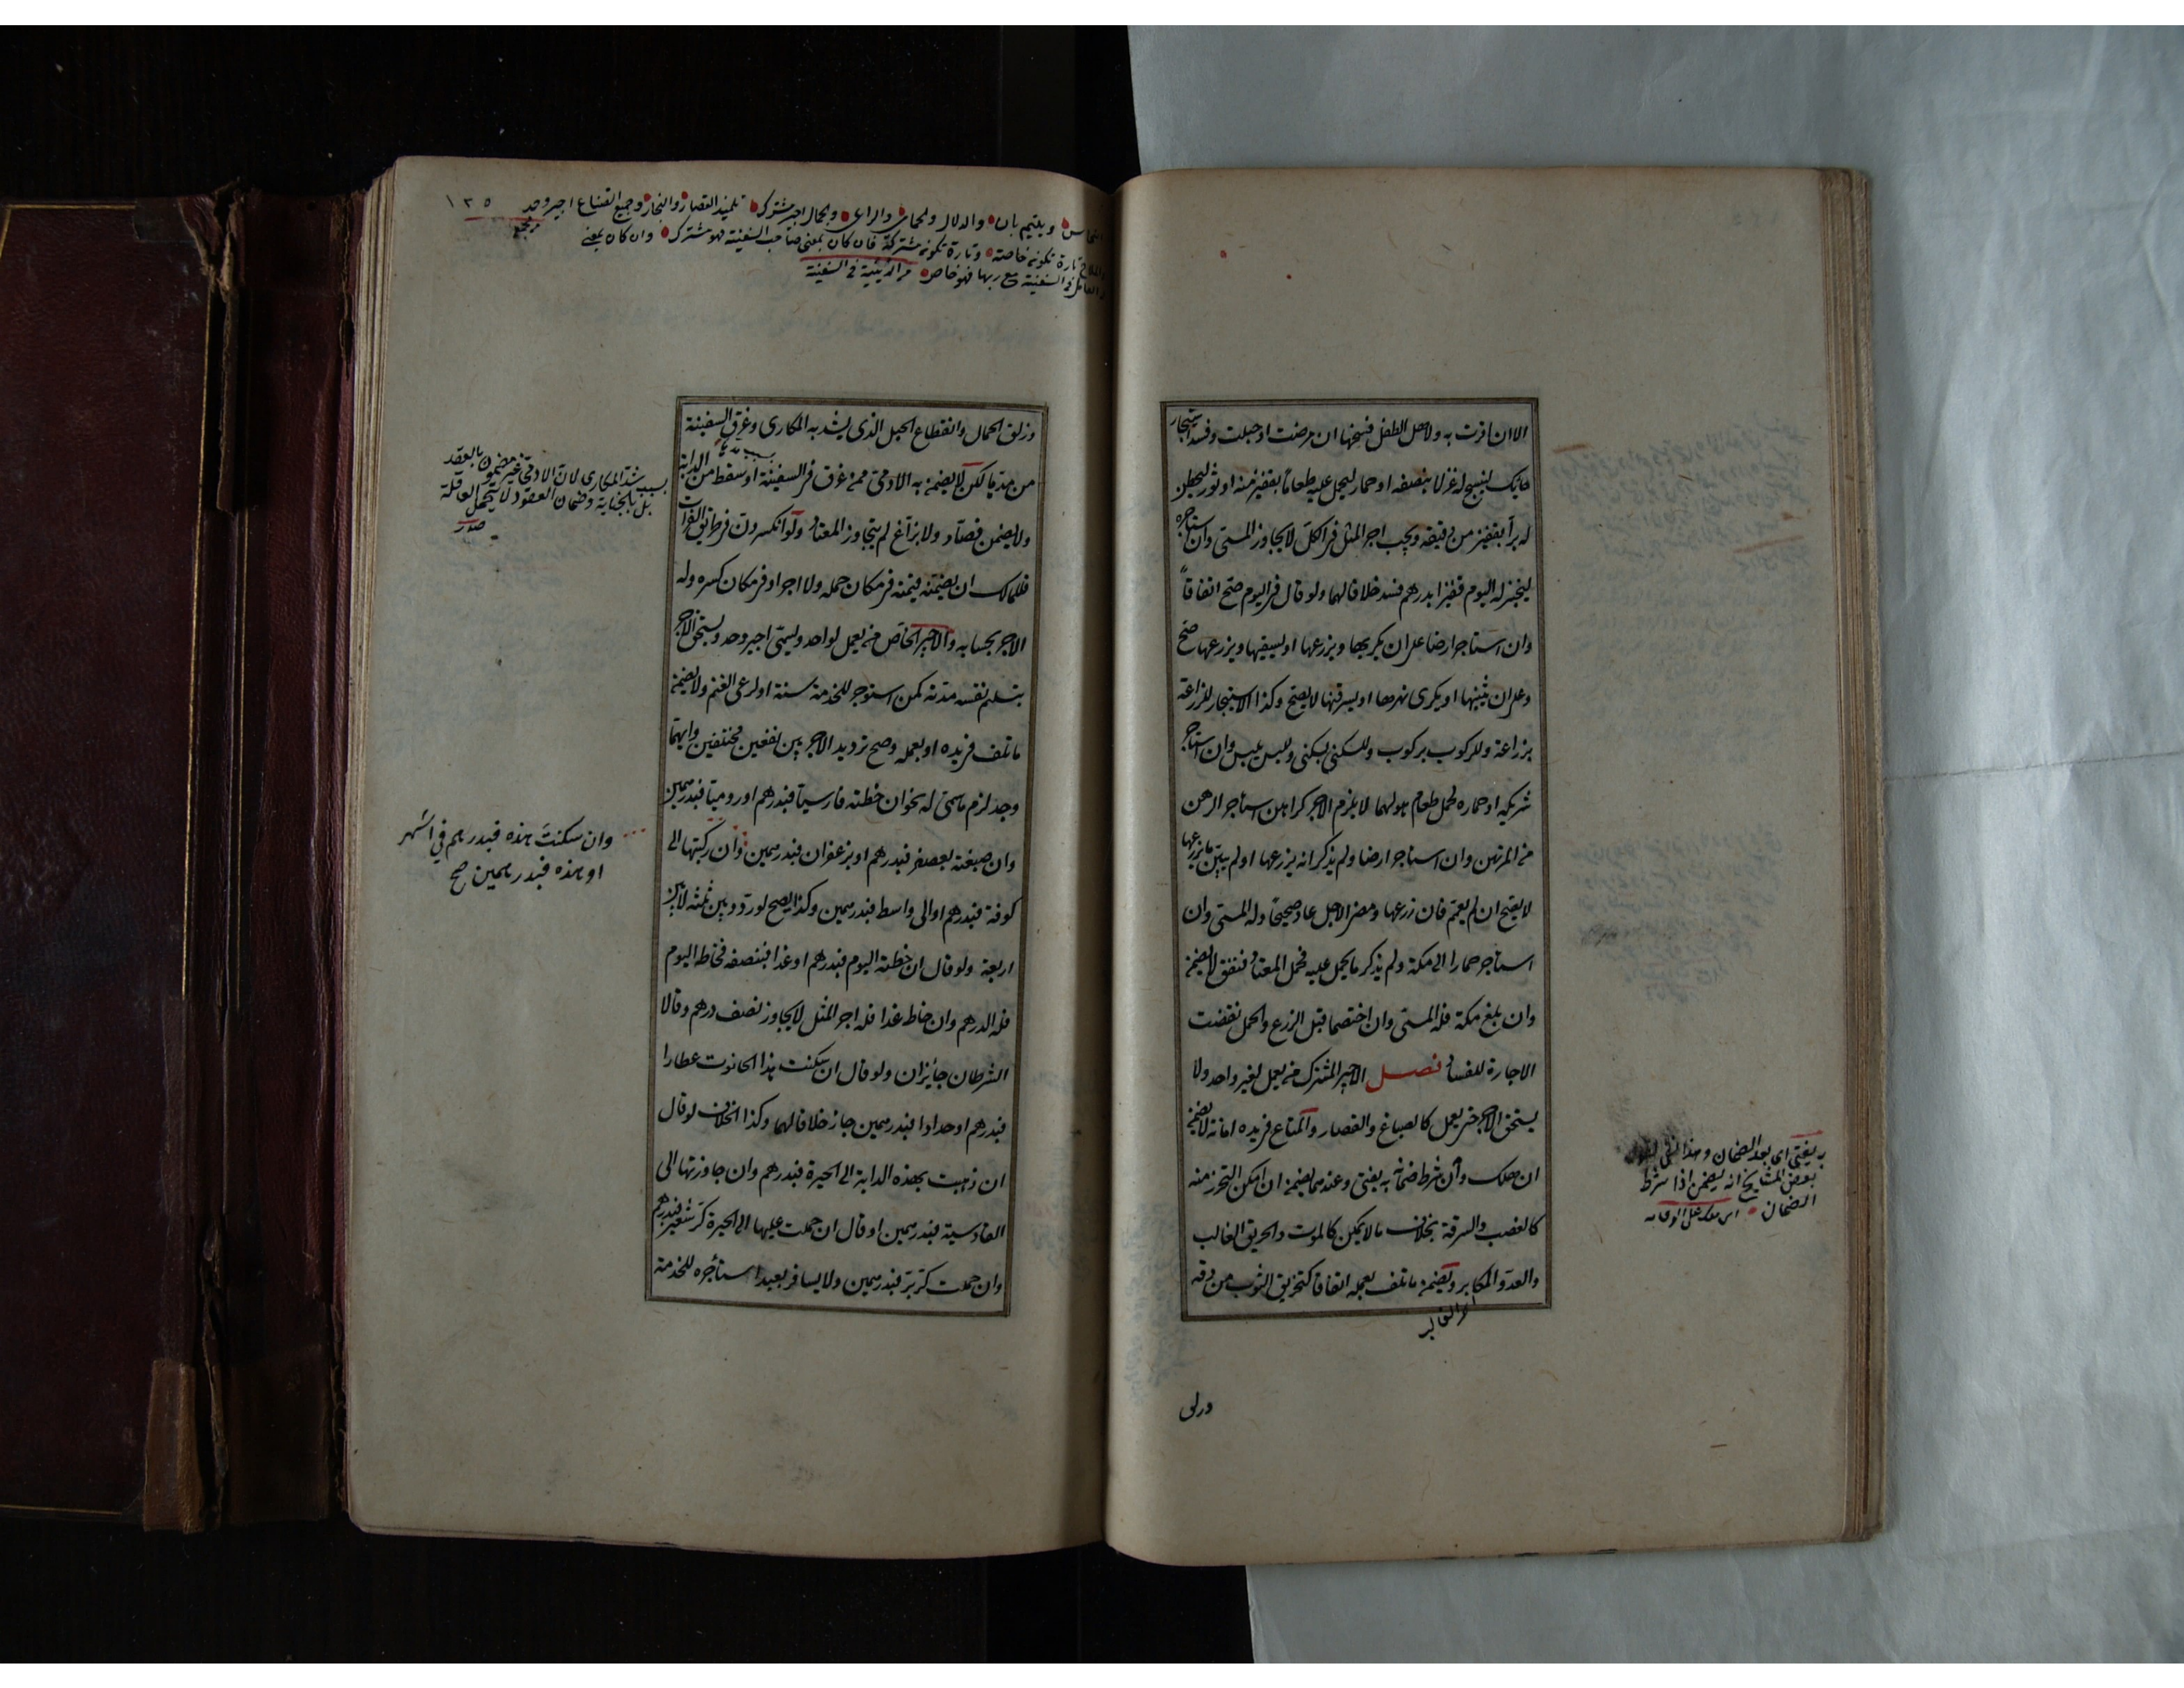 الا ان اقرت به ولاهل الطفل فسخها ان مرضت او حبلت وفسد استئجار
حايك لينسج له غزلا بنصفه او حمار ليحمل عليه طعاماً بقفيز منه او ثور ليطحن
له براً بقفيز من دقيقه ويجب اجر المثل في الكل لا يجاوز المسمى وان استاجره
ليخبز له اليوم قفيزا بدرهم فسد خلافا لهما ولو قال في اليوم صح اتفاقاً
وان استاجر ارضا على ان يكربها ويزرعها او يسقيها ويزرعها صح
وعلى ان يثنيها او يكرى نهرها او يسرقنها لا يصح وكذا الاستيجار للزراعة
بزراعة وللركوب بركوب وللسكنى بسكنى وللبس بلبس وان استاجر
شريكه او حماره لحمل طعام هو لهما لا يلزم الاجر كراهن استاجر الرهن
من المرتهن وان استاجر ارضا ولم يذكر انه يزرعها او لم يبين ما يزرعها
لا يصح ان لم يعمم فان زرعها ومضى الاجل عاد صحيحاً وله المسمى وان
استاجر حمارا الى مكة ولم يذكر ما يحمل عليه فحمل المعتاد فنفق لا يضمن
وان بلغ مكة فله المسمى وان اختصما قبل الزرع والحمل نقضت
الاجارة للفساد فصل الاجير المشترك من يعمل لغير واحد ولا
يستحق الاجر حتى يعمل كالصباغ والقصار والمتاع في يده امانة لا يضمن
ان هلك وان شرط ضمانه به يفتى وعندهما يضمن ان امكن التحرز منه
كالغصب والسرقة بخلاف ما لا يمكن كالموت والحريق الغالب
والعدو المكابر ويضمن ما تلف بعمله اتفاقا كتخريق الثوب من دقه
به يفتى اى بعدم الضمان وهذا
بعض المشايخ انه يضمن اذا شرط
الضمان
وزلق
وبتيم بان والدلال والراعى والحمال اجير مشترك تلميذ القصار والنجار وجميع الصناع اجير وحد ١٣٥
تارة تكون خاصة وتارة تكون مشتركة فان كان بمعنى صاحب السفينة فهو مشترك وان كان بمعنى
العامل فى السفينة مع ربها فهو خاص فى السفينة
وزلق الحمال وانقطاع الحبل الذى يشد به المكارى وغرق السفينة
من مدها لكن لا يضمن به الادمى ممن غرق في السفينة او سقط من الدابة
ولا يضمن فصاد ولا بزاغ لم يتجاوز المعتاد ولو انكسر دن في طريق الفرات
فللمالك ان يضمنه قيمته في مكان حمله ولا اجر او في مكان كسره وله
الاجر بحسابه والاجير الخاص من يعمل لواحد ويسمى اجير وحد ويستحق الاجر
بتسليم نفسه مدته كمن استوجر للخدمة سنة او لرعى الغنم ولا يضمن
ما تلف في يده او بعمله وصح ترديد الاجر بين نفعين مختلفين وايهما
وجد لزم ما سمى له نحو ان خطته فارسيا فبدرهم او روميا فبدرهمين
وان صبغته بعصفر فبدرهم او بزعفران فبدرهمين وان ركبتها الى
كوفة فبدرهم او الى واسط فبدرهمين وكذا يصح لو ردد بين ثلثة لا بين
اربعة ولو قال ان خطته اليوم فبدرهم او غدا فبنصفه فخاطه اليوم
فله الدرهم وان خاط غدا فله اجر المثل لا يجاوز نصف درهم وقالا
الشرطان جائزان ولو قال ان سكنت هذا الحانوت عطارا
فبدرهم او حدادا فبدرهمين جاز خلافا لهما وكذا الخلاف لو قال
ان ذهبت بهذه الدابة الى الحيرة فبدرهم وان جاوزتها الى
القادسية فبدرهمين او قال ان حملت عليها الى الحيرة كر شعير فبدرهم
وان حملت كر بر فبدرهمين ولا يسافر بعبد استأجره للخدمة
بسبب شد المكارى لان الادمى غير مضمون بالعقد
بل بالجناية وضمان العقود لا تتحمل العاقلة
صدر
وان سكنت هذه فبدرهم في الشهر
او هذه فبدرهمين صح